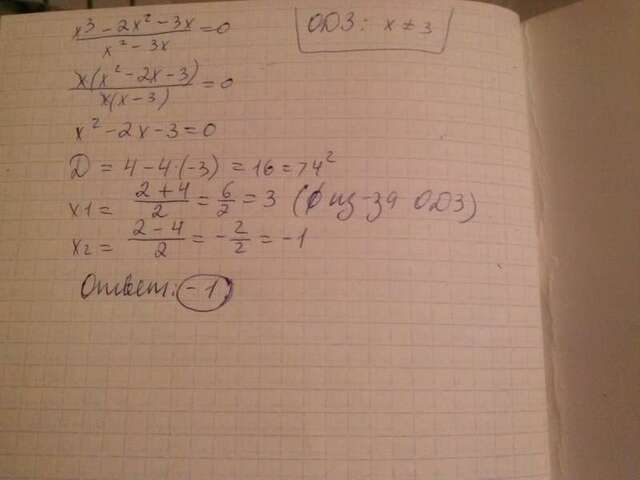 x³ - 2x² - 3x / x² - 3x = 0
ОДЗ: x ≠ 3
x(x² - 2x - 3) / x(x - 3) = 0
x² - 2x - 3 = 0
D = 4 - 4·(-3) = 16 = 74²
x1 = 2 + 4 / 2 = 6/2 = 3 (∅ из-за ОДЗ)
x2 = 2 - 4 / 2 = -2/2 = -1
Ответ: -1